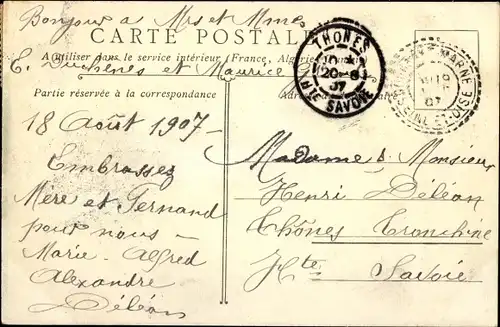 Bonjour à Mrs et Mmes
CARTE POSTALE
A utiliser dans le service intérieur (France, Algérie
E. Duchenes et Maurice
Partie réservée à la correspondance
THONES
20-8
07
HTE SAVOIE
MARNE
07
SEINE-ET-OISE
18 Août 1907-
Embrassez
Mère et Fernand
pour nous -
Marie - Alfred
Alexandre
Déléan
Madame & Monsieur
Henri Déléan
Thônes Tronchine
Hte Savoie